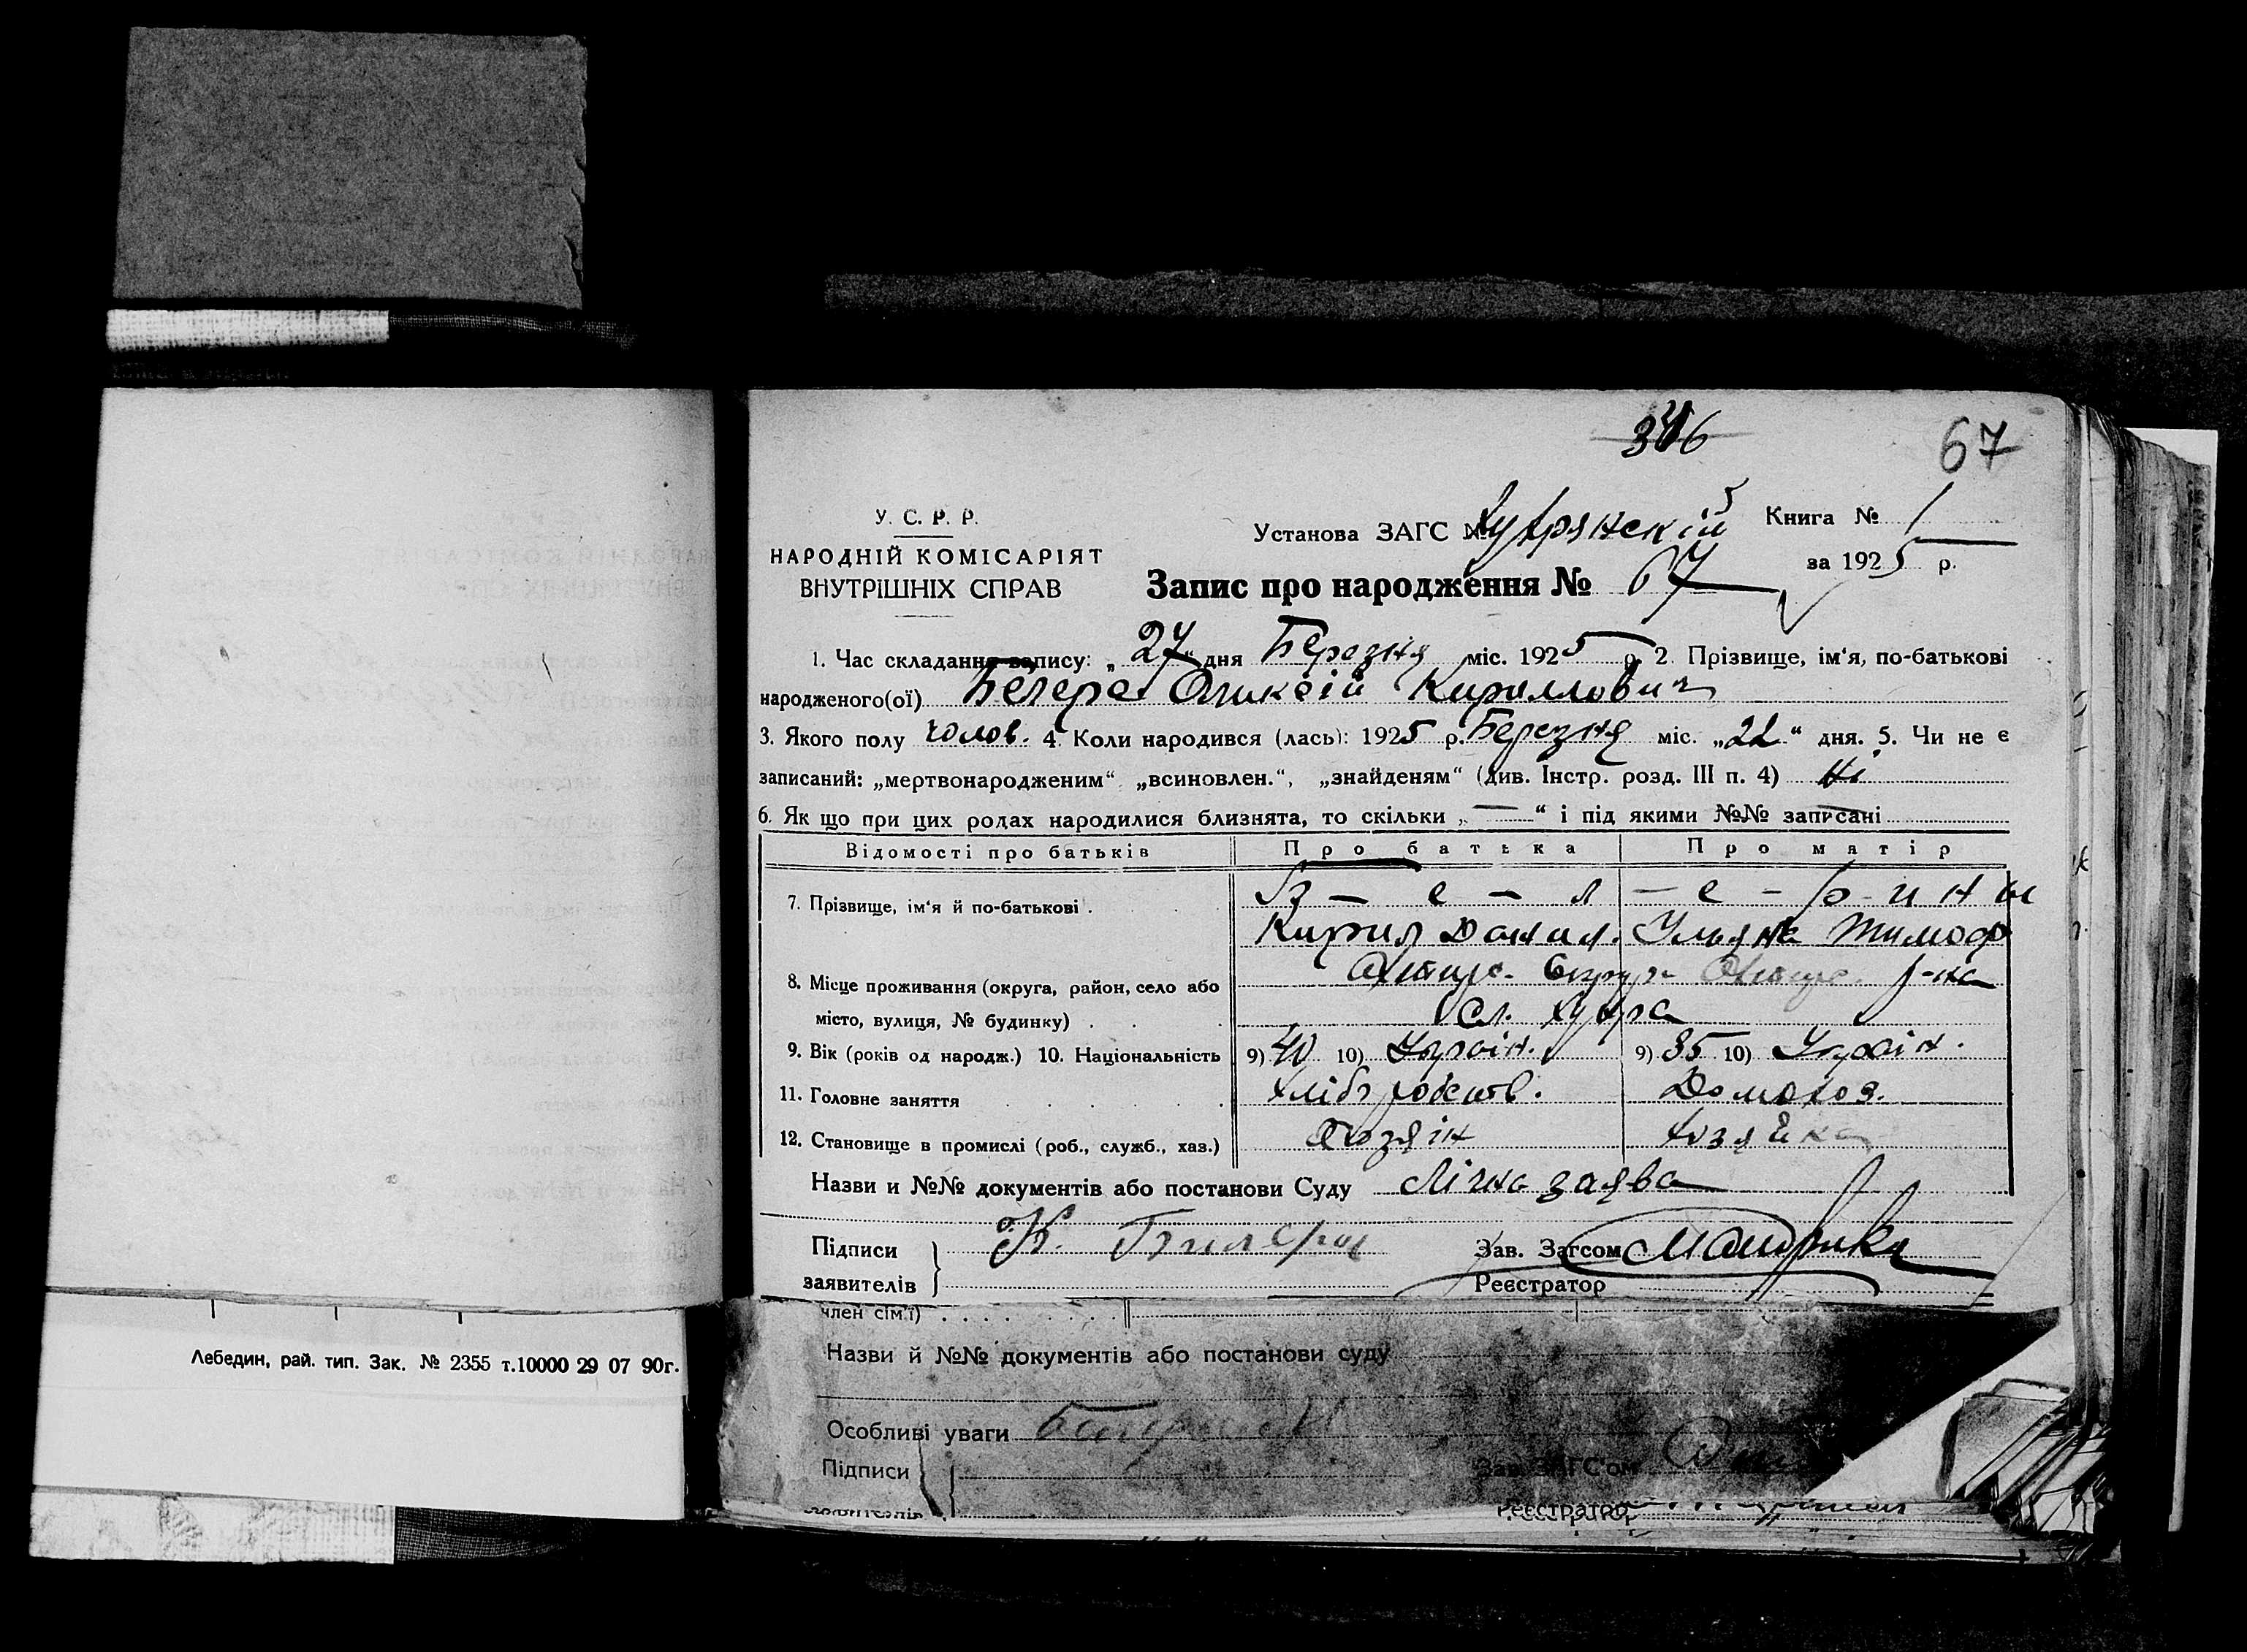 67
У. С. Р. Р.
НАРОДНІЙ КОМІСАРІЯТ
ВНУТРІШНІХ СПРАВ
Установа ЗАГС № Хухрянскій
Книга № 1
за 1925 р.
Запис про народження № 67
1. Час складання запису: „27“ дня Березня міс. 1925 р. 2. Прізвище, ім‘я, по-батькові
народженого(ої) Белера Оликсій Кириллович
3. Якого полу чолов. 4. Коли народився (лась): 1925 р. Березня міс. „22“ дня. 5. Чи не є
записаний: „мертвонародженим“ „всиновлен.“, „знайденям“ (див. Інстр. розд. III п. 4) Ні
6. Як що при цих родах народилися близнята, то скільки „—“ і під якими №№ записані —
Відомості про батьків Про батька Про матір
7. Прізвище, ім‘я й по-батькові . Б — е — л — е — р и н ы
Кирил Данил. Ульяна Тимоф
8. Місце проживання (округа, район, село або Охтир. Округи Охтир. р-на
місто, вулиця, № будинку) . . . сл. Хухра
9. Вік (років од народж.) 10. Національність 9) 40 10) Украін. 9) 35 10) Украін.
11. Головне заняття . . . . . Хлібороб
12. Становище в промислі (роб., служб., хаз.) Хозяін Хозяйка
Назви и №№ документів або постанови Суду Лічна заява
Підписи
заявителів
К.
Зав. Загсом
Реєстратор
член сім'ї) . . . . . . . . .
Назви й №№ документів або постанови суду
Особливі уваги
Підписи
заявителів
Зав. ЗАГС'ом
Реєстратор
Лебедин, рай. тип. Зак. № 2355 т.10000 29 07 90г.